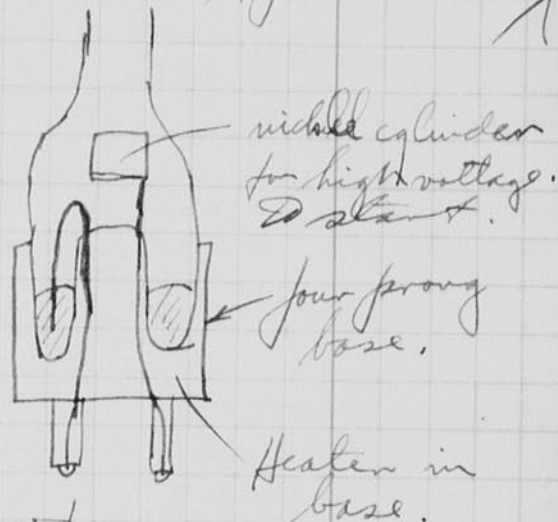 nickel cylinder
for high voltage.
To start.
four prong
base.
Heater in
base.